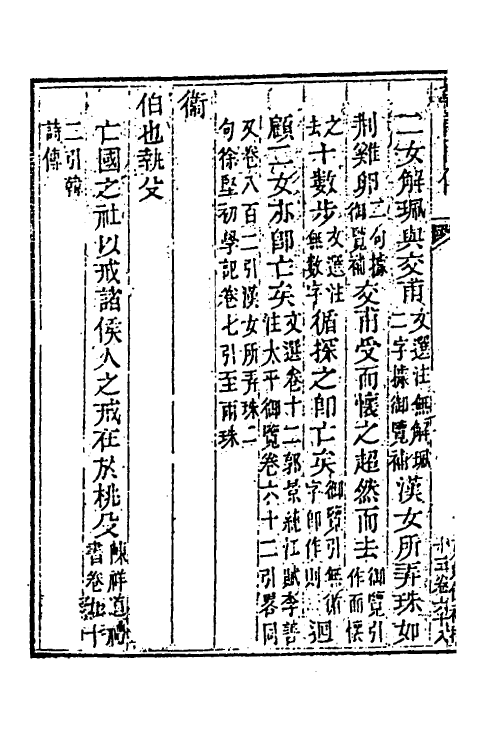 二女解珮與交甫文選注無解珮二字據御覽補漢女所弄珠如
荆雞卵二句據御覽補交甫受而懷之超然而去御覽引作而懷
之去十數步文選注無數字循探之卽亡矣御覽引無循字卽作則迴
顧二女亦卽亡矣文選卷十二郭景純江賦李善注太平御覽卷六十二引畧同
又卷八百二引漢女所弄珠二句徐堅初學記卷七引至兩珠
衞
伯也執殳
亡國之社以戒諸侯人之戒在於桃殳陳祥道禮書卷九十
二引韓詩傳